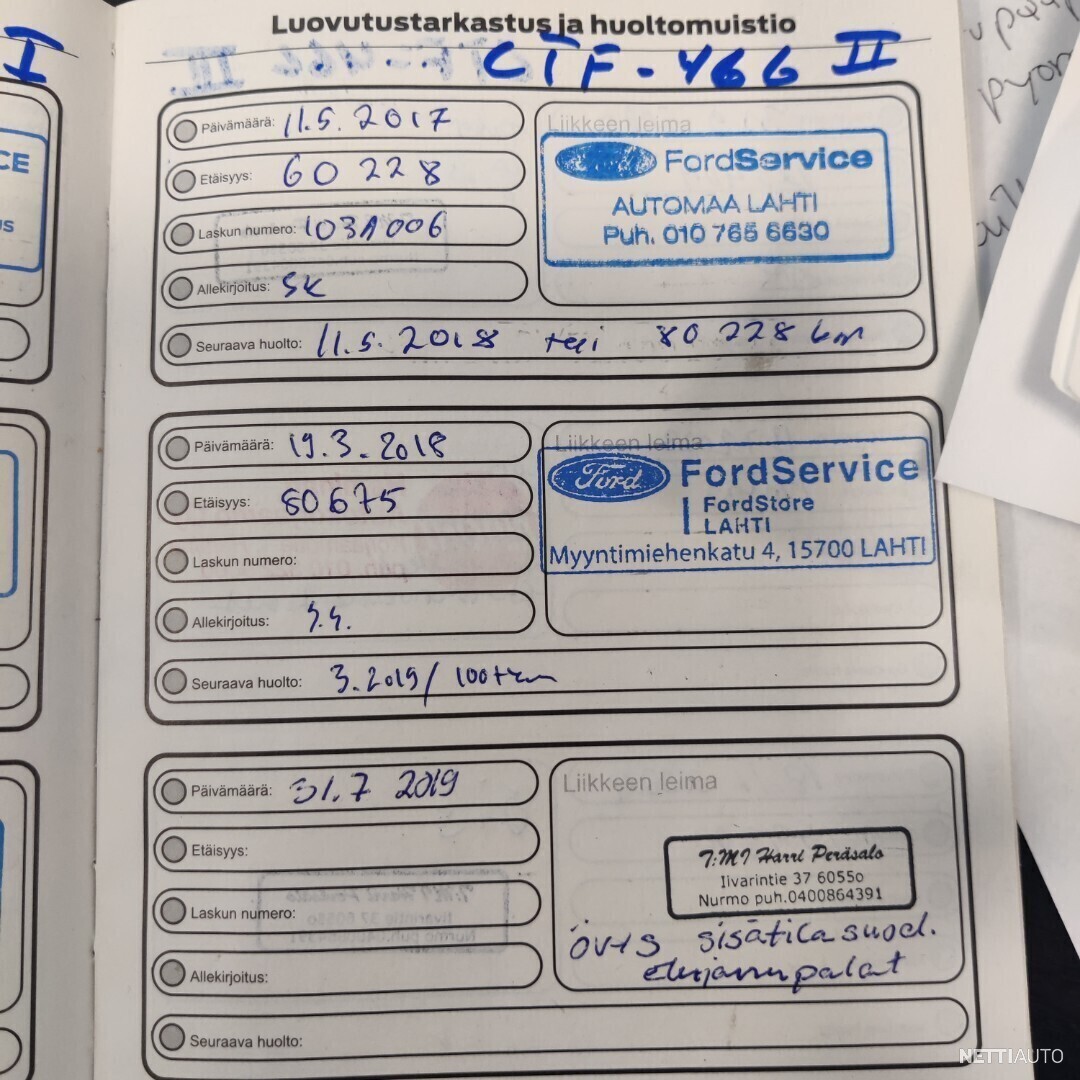 Luovutustarkastus ja huoltomuistio
I
CTF-466 II
Päivämäärä: 11.5.2017
Etäisyys: 60 228
Laskun numero: 103A006
Allekirjoitus: SK
Seuraava huolto: 11.5.2018 tai 80 228 km
Liikkeen leima
Ford FordService
AUTOMAA LAHTI
Puh. 010 765 6630
Päivämäärä: 19.3.2018
Etäisyys: 80675
Laskun numero:
Allekirjoitus:
Seuraava huolto: 3.2019/ 100tkm
Liikkeen leima
Ford FordService
FordStore
LAHTI
Myyntimiehenkatu 4, 15700 LAHTI
Päivämäärä: 31.7 2019
Etäisyys:
Laskun numero:
Allekirjoitus:
Seuraava huolto:
Liikkeen leima
T:MI Harri Peräsalo
Iivarintie 37 60550
Nurmo puh.0400864391
öv+s sisätilasuod.
etujarrupalat
CE
US
NETTIAUTO